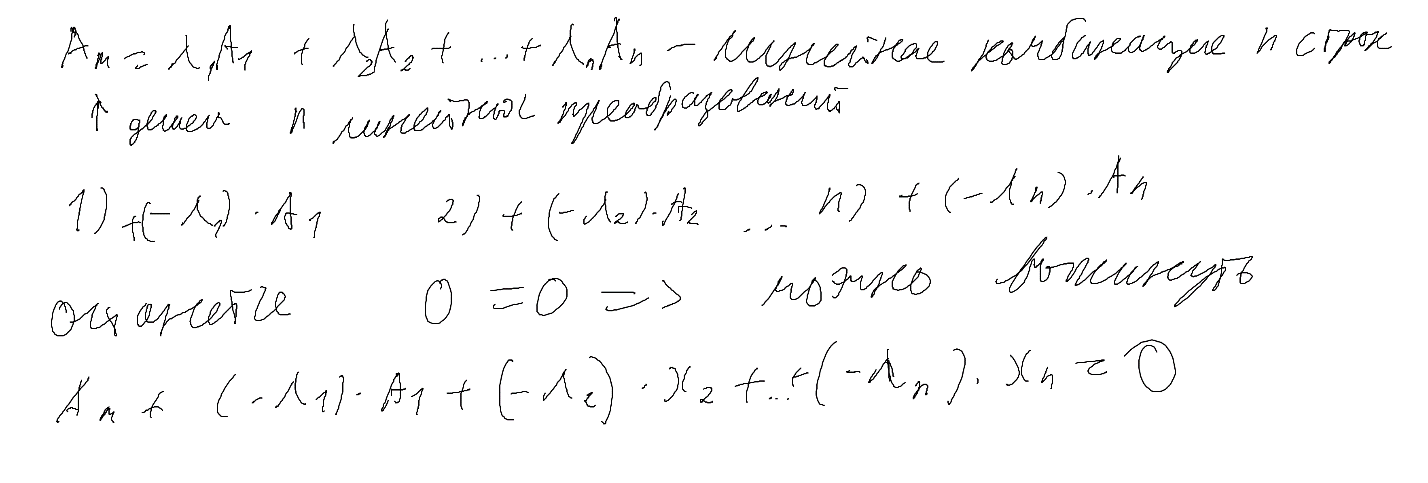 Am = λ₁A₁ + λ₂A₂ + ... + λₙAₙ - линейная комбинация n строк
↑ делаем n линейных преобразований
1) +(-λ₁)·A₁ 2) +(-λ₂)·A₂ ... n) +(-λn)·An
останется 0 = 0 => можно выкинуть
Am + (-λ₁)·A₁ + (-λ₂)·x₂ + ... + (-λn)·xn = 0